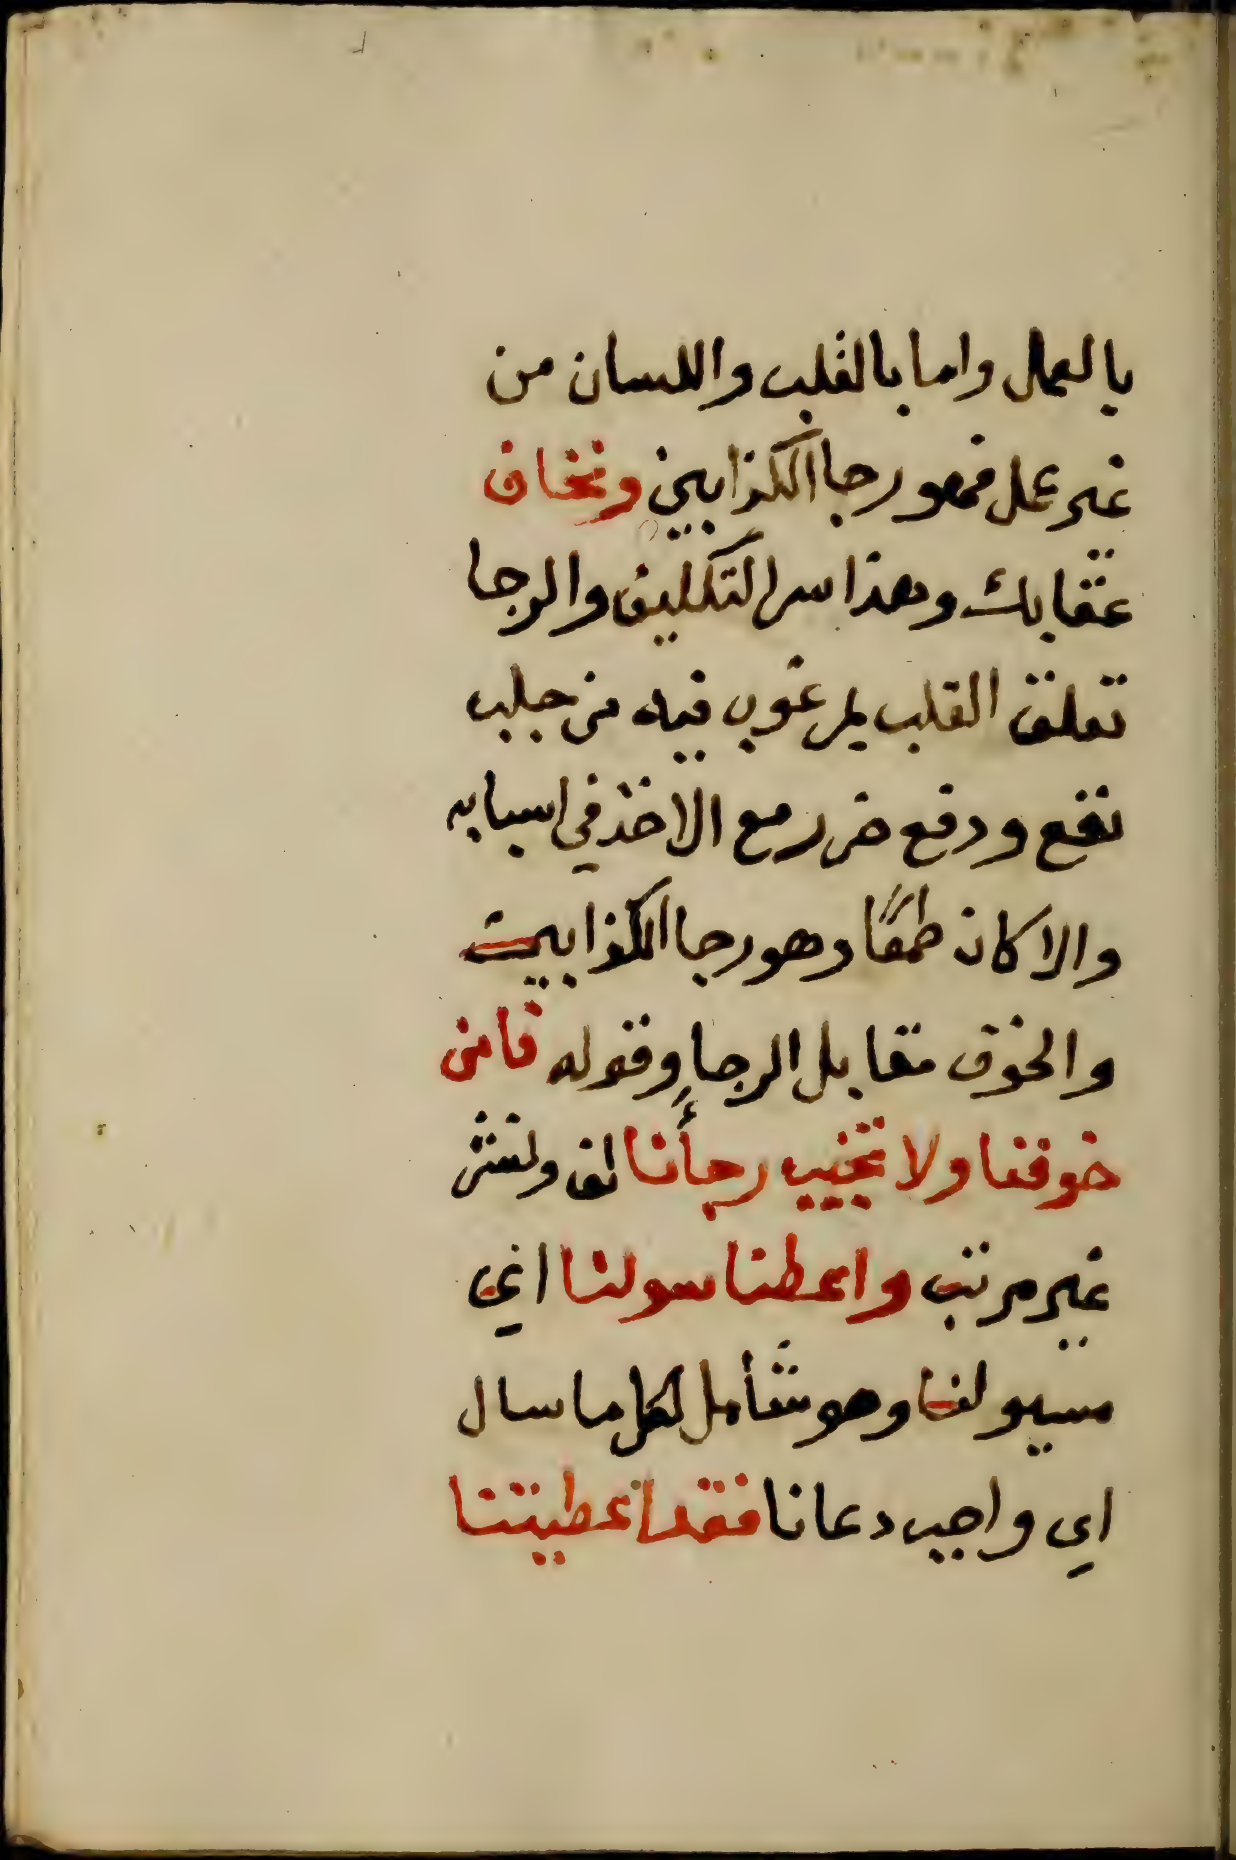 بالعمل واما بالقلب واللسان من
غير عمل فهو رجا الكذابين ونخاف
عقابك وهذا سر التكليف والرجا
تعلق القلب بمرغوب فيه من جلب
نفع ودفع ضرر مع الاخذ في اسبابه
والا كان طمعًا وهو رجا الكذابين
والخوف مقابل الرجاءِ وقوله فامن
خوفنا ولا تخيب رجأنا لف ونشر
غير مرتب واعطنا سولنا اي
مسيولنا وهو شامل لكل ما سال
اي واجب دعانا فقد اعطيتنا